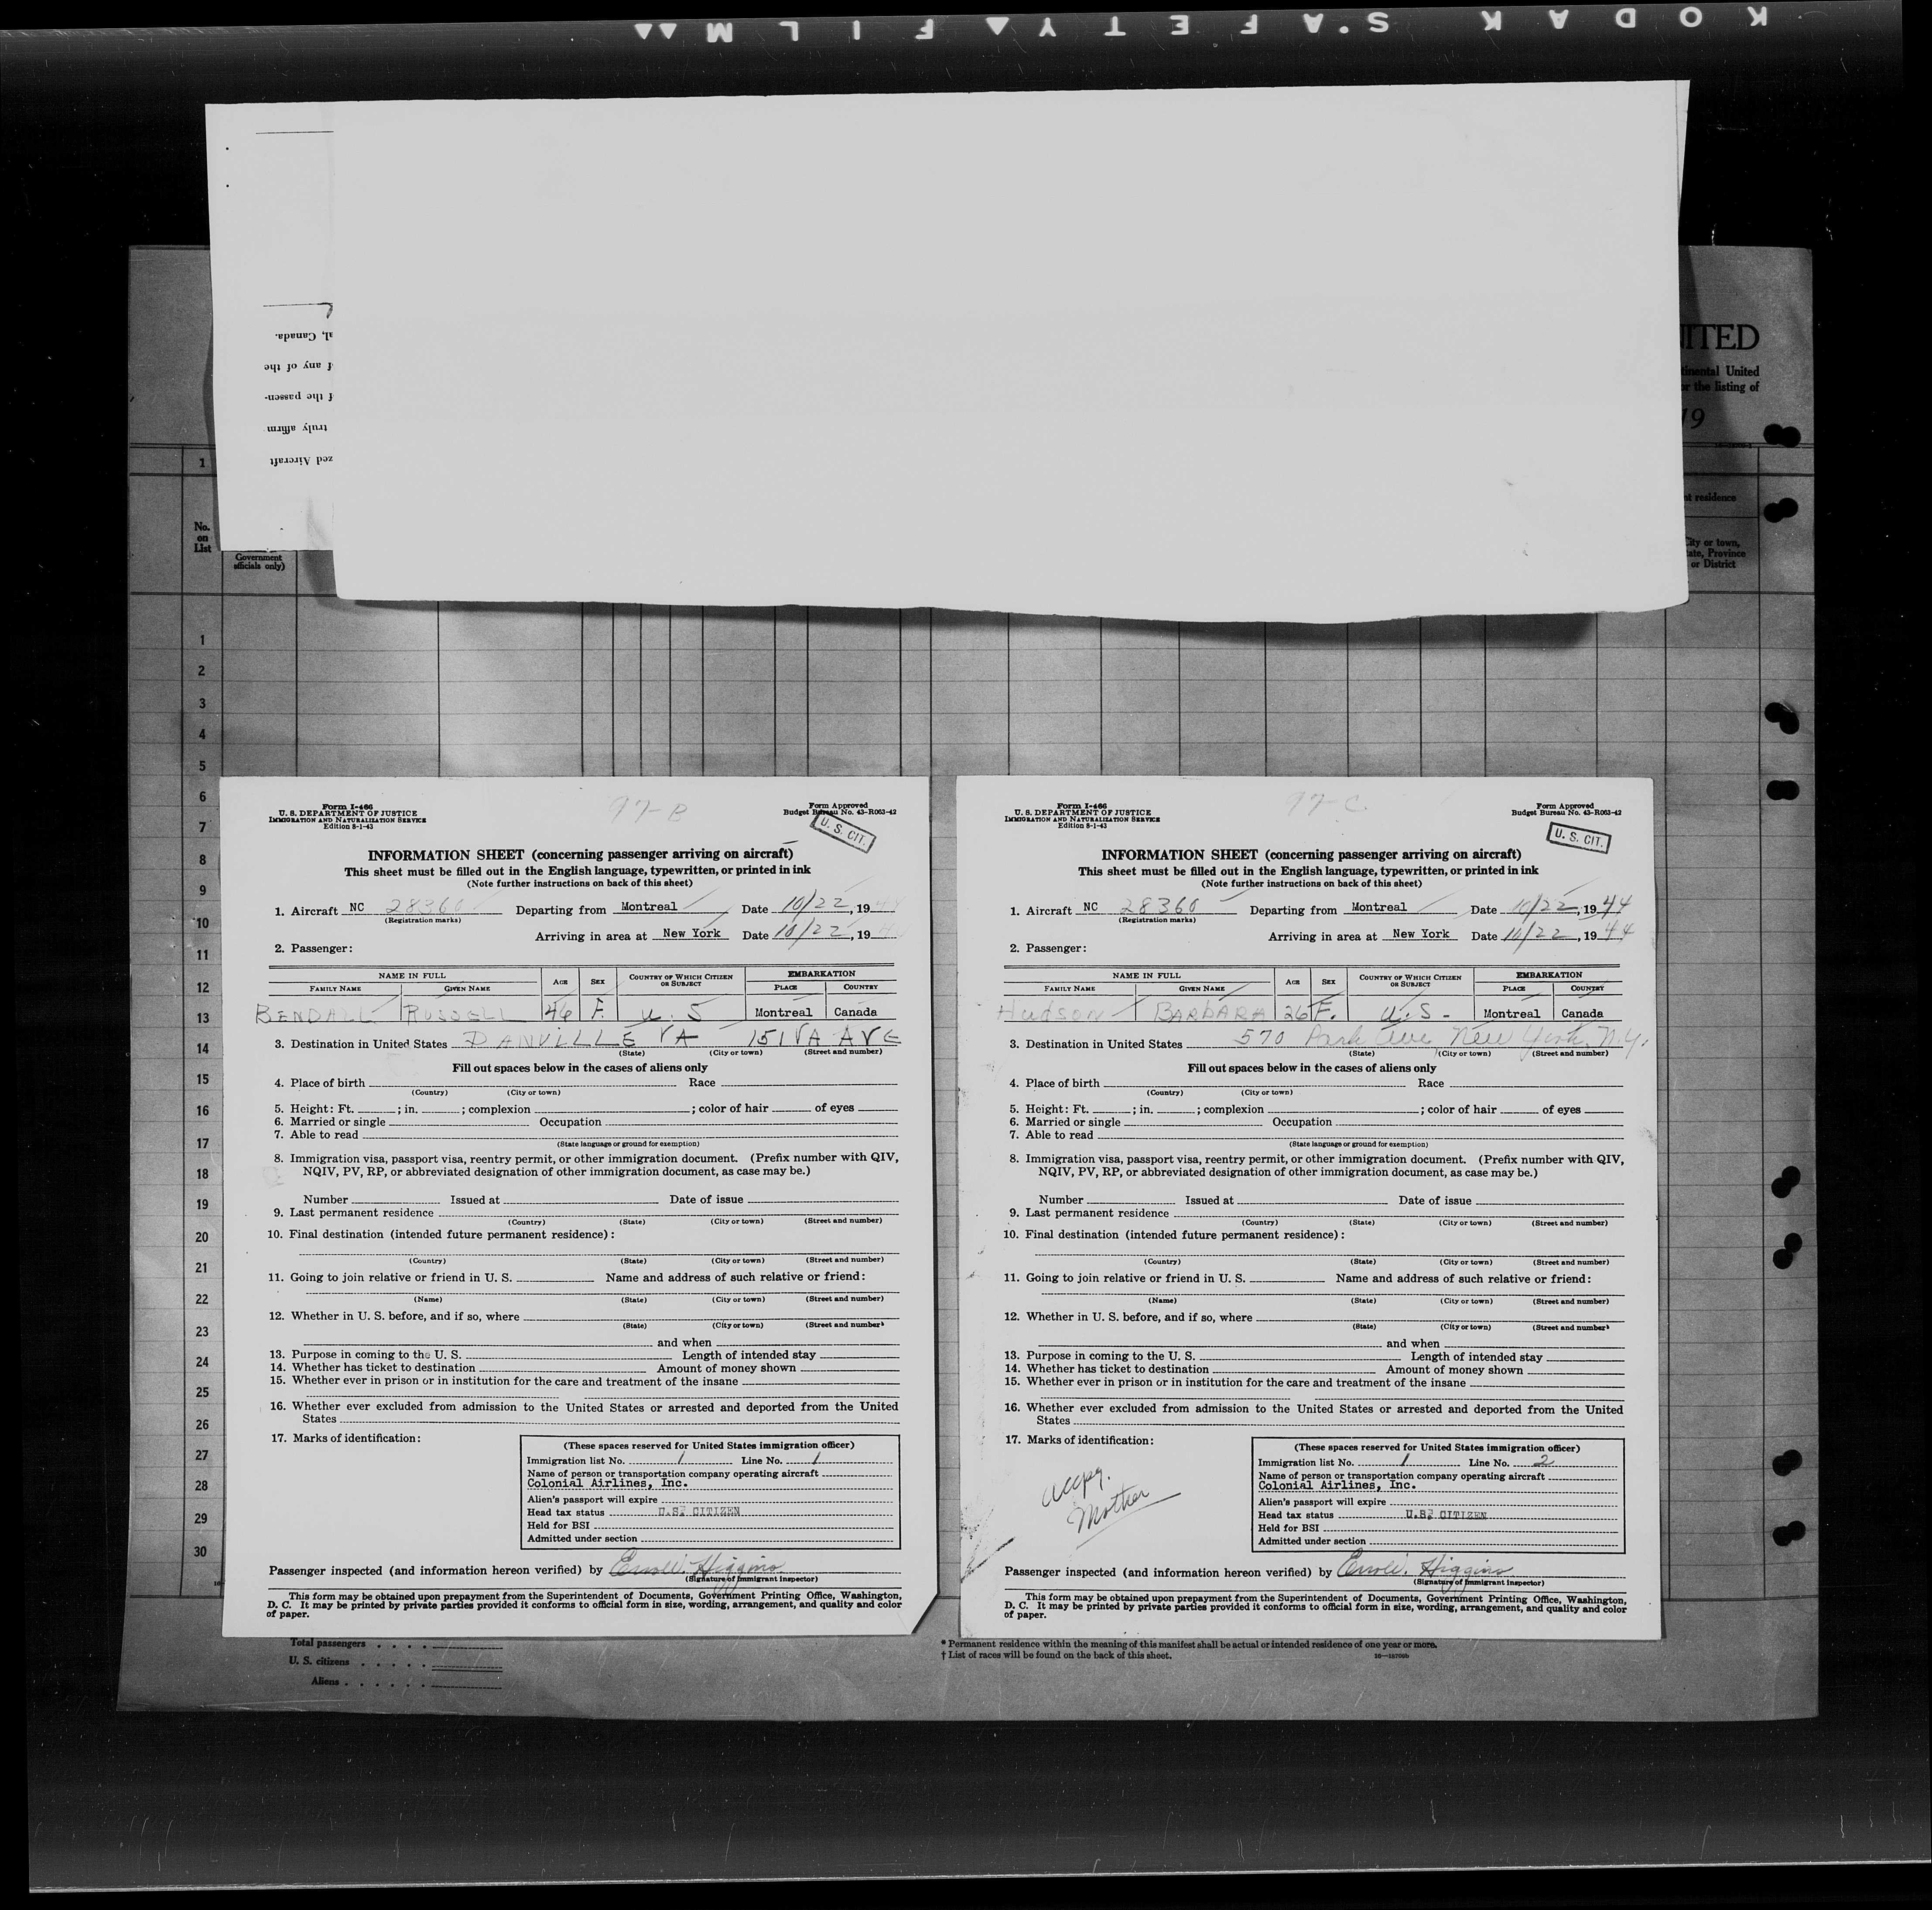 KODAK SAFETY FILM
al, Canada.
f any of the
f the passen-
truly affirm
zed Aircraft
NITED
tinental United
or the listing of
19
1
nt residence
No.
on
List
Government
officials only)
City or town,
tate, Province
or District
1
2
3
4
5
6
7
8
9
10
11
12
13
14
15
16
17
18
19
20
21
22
23
24
25
26
27
28
29
30
Form I-466
U. S. DEPARTMENT OF JUSTICE
IMMIGRATION AND NATURALIZATION SERVICE
Edition 8-1-43
97-B
Form Approved
Budget Bureau No. 43-R063-42
U. S. CIT.
INFORMATION SHEET (concerning passenger arriving on aircraft)
This sheet must be filled out in the English language, typewritten, or printed in ink
(Note further instructions on back of this sheet)
1. Aircraft NC 28360 Departing from Montreal Date 10/22, 1944
(Registration marks)
Arriving in area at New York Date 10/22, 1944
2. Passenger:
NAME IN FULL AGE SEX COUNTRY OF WHICH CITIZEN OR SUBJECT EMBARKATION
FAMILY NAME GIVEN NAME PLACE COUNTRY
BENDALL RUSSELL 46 F. U. S Montreal Canada
3. Destination in United States DANVILLE VA 151 VA AVE
(State) (City or town) (Street and number)
Fill out spaces below in the cases of aliens only
4. Place of birth Race
(Country) (City or town)
5. Height: Ft. ; in. ; complexion ; color of hair of eyes
6. Married or single Occupation
7. Able to read
(State language or ground for exemption)
8. Immigration visa, passport visa, reentry permit, or other immigration document. (Prefix number with QIV,
NQIV, PV, RP, or abbreviated designation of other immigration document, as case may be.)
Number Issued at Date of issue
9. Last permanent residence
(Country) (State) (City or town) (Street and number)
10. Final destination (intended future permanent residence):
(Country) (State) (City or town) (Street and number)
11. Going to join relative or friend in U. S. Name and address of such relative or friend:
(Name) (State) (City or town) (Street and number)
12. Whether in U. S. before, and if so, where
(State) (City or town) (Street and number)
and when
13. Purpose in coming to the U. S. Length of intended stay
14. Whether has ticket to destination Amount of money shown
15. Whether ever in prison or in institution for the care and treatment of the insane
16. Whether ever excluded from admission to the United States or arrested and deported from the United
States
17. Marks of identification:
(These spaces reserved for United States immigration officer)
Immigration list No. 1 Line No. 1
Name of person or transportation company operating aircraft
Colonial Airlines, Inc.
Alien's passport will expire
Head tax status U.S. CITIZEN
Held for BSI
Admitted under section
Passenger inspected (and information hereon verified) by Errol W. Higgins
(Signature of Immigrant Inspector)
This form may be obtained upon prepayment from the Superintendent of Documents, Government Printing Office, Washington,
D. C. It may be printed by private parties provided it conforms to official form in size, wording, arrangement, and quality and color
of paper.
Form I-466
U. S. DEPARTMENT OF JUSTICE
IMMIGRATION AND NATURALIZATION SERVICE
Edition 8-1-43
97-C
Form Approved
Budget Bureau No. 43-R063-42
U. S. CIT.
INFORMATION SHEET (concerning passenger arriving on aircraft)
This sheet must be filled out in the English language, typewritten, or printed in ink
(Note further instructions on back of this sheet)
1. Aircraft NC 28360 Departing from Montreal Date 10/22, 1944
(Registration marks)
Arriving in area at New York Date 10/22, 1944
2. Passenger:
NAME IN FULL AGE SEX COUNTRY OF WHICH CITIZEN OR SUBJECT EMBARKATION
FAMILY NAME GIVEN NAME PLACE COUNTRY
Hudson BARBARA 26 F. U. S- Montreal Canada
3. Destination in United States 570 Park Ave, New York, N.Y.
(State) (City or town) (Street and number)
Fill out spaces below in the cases of aliens only
4. Place of birth Race
(Country) (City or town)
5. Height: Ft. ; in. ; complexion ; color of hair of eyes
6. Married or single Occupation
7. Able to read
(State language or ground for exemption)
8. Immigration visa, passport visa, reentry permit, or other immigration document. (Prefix number with QIV,
NQIV, PV, RP, or abbreviated designation of other immigration document, as case may be.)
Number Issued at Date of issue
9. Last permanent residence
(Country) (State) (City or town) (Street and number)
10. Final destination (intended future permanent residence):
(Country) (State) (City or town) (Street and number)
11. Going to join relative or friend in U. S. Name and address of such relative or friend:
(Name) (State) (City or town) (Street and number)
12. Whether in U. S. before, and if so, where
(State) (City or town) (Street and number)
and when
13. Purpose in coming to the U. S. Length of intended stay
14. Whether has ticket to destination Amount of money shown
15. Whether ever in prison or in institution for the care and treatment of the insane
16. Whether ever excluded from admission to the United States or arrested and deported from the United
States
17. Marks of identification:
accpg.
Mother
(These spaces reserved for United States immigration officer)
Immigration list No. 1 Line No. 2
Name of person or transportation company operating aircraft
Colonial Airlines, Inc.
Alien's passport will expire
Head tax status U.S. CITIZEN
Held for BSI
Admitted under section
Passenger inspected (and information hereon verified) by Errol W. Higgins
(Signature of Immigrant Inspector)
This form may be obtained upon prepayment from the Superintendent of Documents, Government Printing Office, Washington,
D. C. It may be printed by private parties provided it conforms to official form in size, wording, arrangement, and quality and color
of paper.
Total passengers
U. S. citizens
Aliens
* Permanent residence within the meaning of this manifest shall be actual or intended residence of one year or more.
† List of races will be found on the back of this sheet.